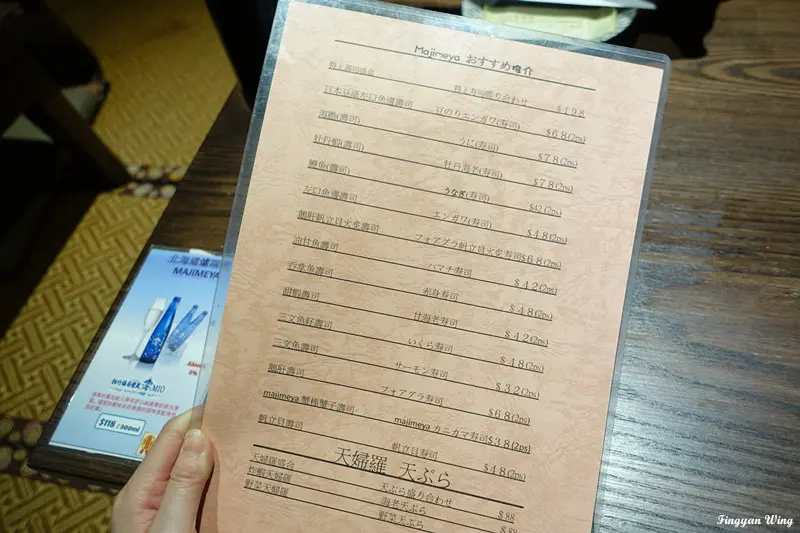 Majimeya おすすめ推介
特上壽司盛合 特上寿司盛り合わせ $198
日本豆豉左口魚邊壽司 豆のりエンガワ(寿司) $68(2ps)
海膽(壽司) うに(寿司) $78(2ps)
牡丹蝦(壽司) 牡丹海老(寿司) $78(2ps)
鰻魚(壽司) うなぎ(寿司) $42(2ps)
左口魚邊壽司 エンガワ(寿司) $48(2ps)
鵝肝帆立貝火炙壽司 フォアグラ帆立貝火炙寿司 $68(2ps)
油甘魚壽司 ハマチ寿司 $42(2ps)
吞拿魚壽司 赤身寿司 $48(2ps)
甜蝦壽司 甘海老寿司 $42(2ps)
三文魚籽壽司 いくら寿司 $48(2ps)
三文魚壽司 サーモン寿司 $32(2ps)
鵝肝壽司 フォアグラ寿司 $68(2ps)
majimeya 蟹棒蟹子壽司 majimeya カニガマ寿司 $38(2ps)
帆立貝壽司 帆立貝寿司 $48(2ps)
天婦羅 天ぷら
天婦羅盛合 天ぷら盛り合わせ $88
炸蝦天婦羅 海老天ぷら $88
野菜天婦羅 野菜天ぷら
北海道爐端
MAJIMEYA
MIO
$118 / 300ml
Fingyan Wing